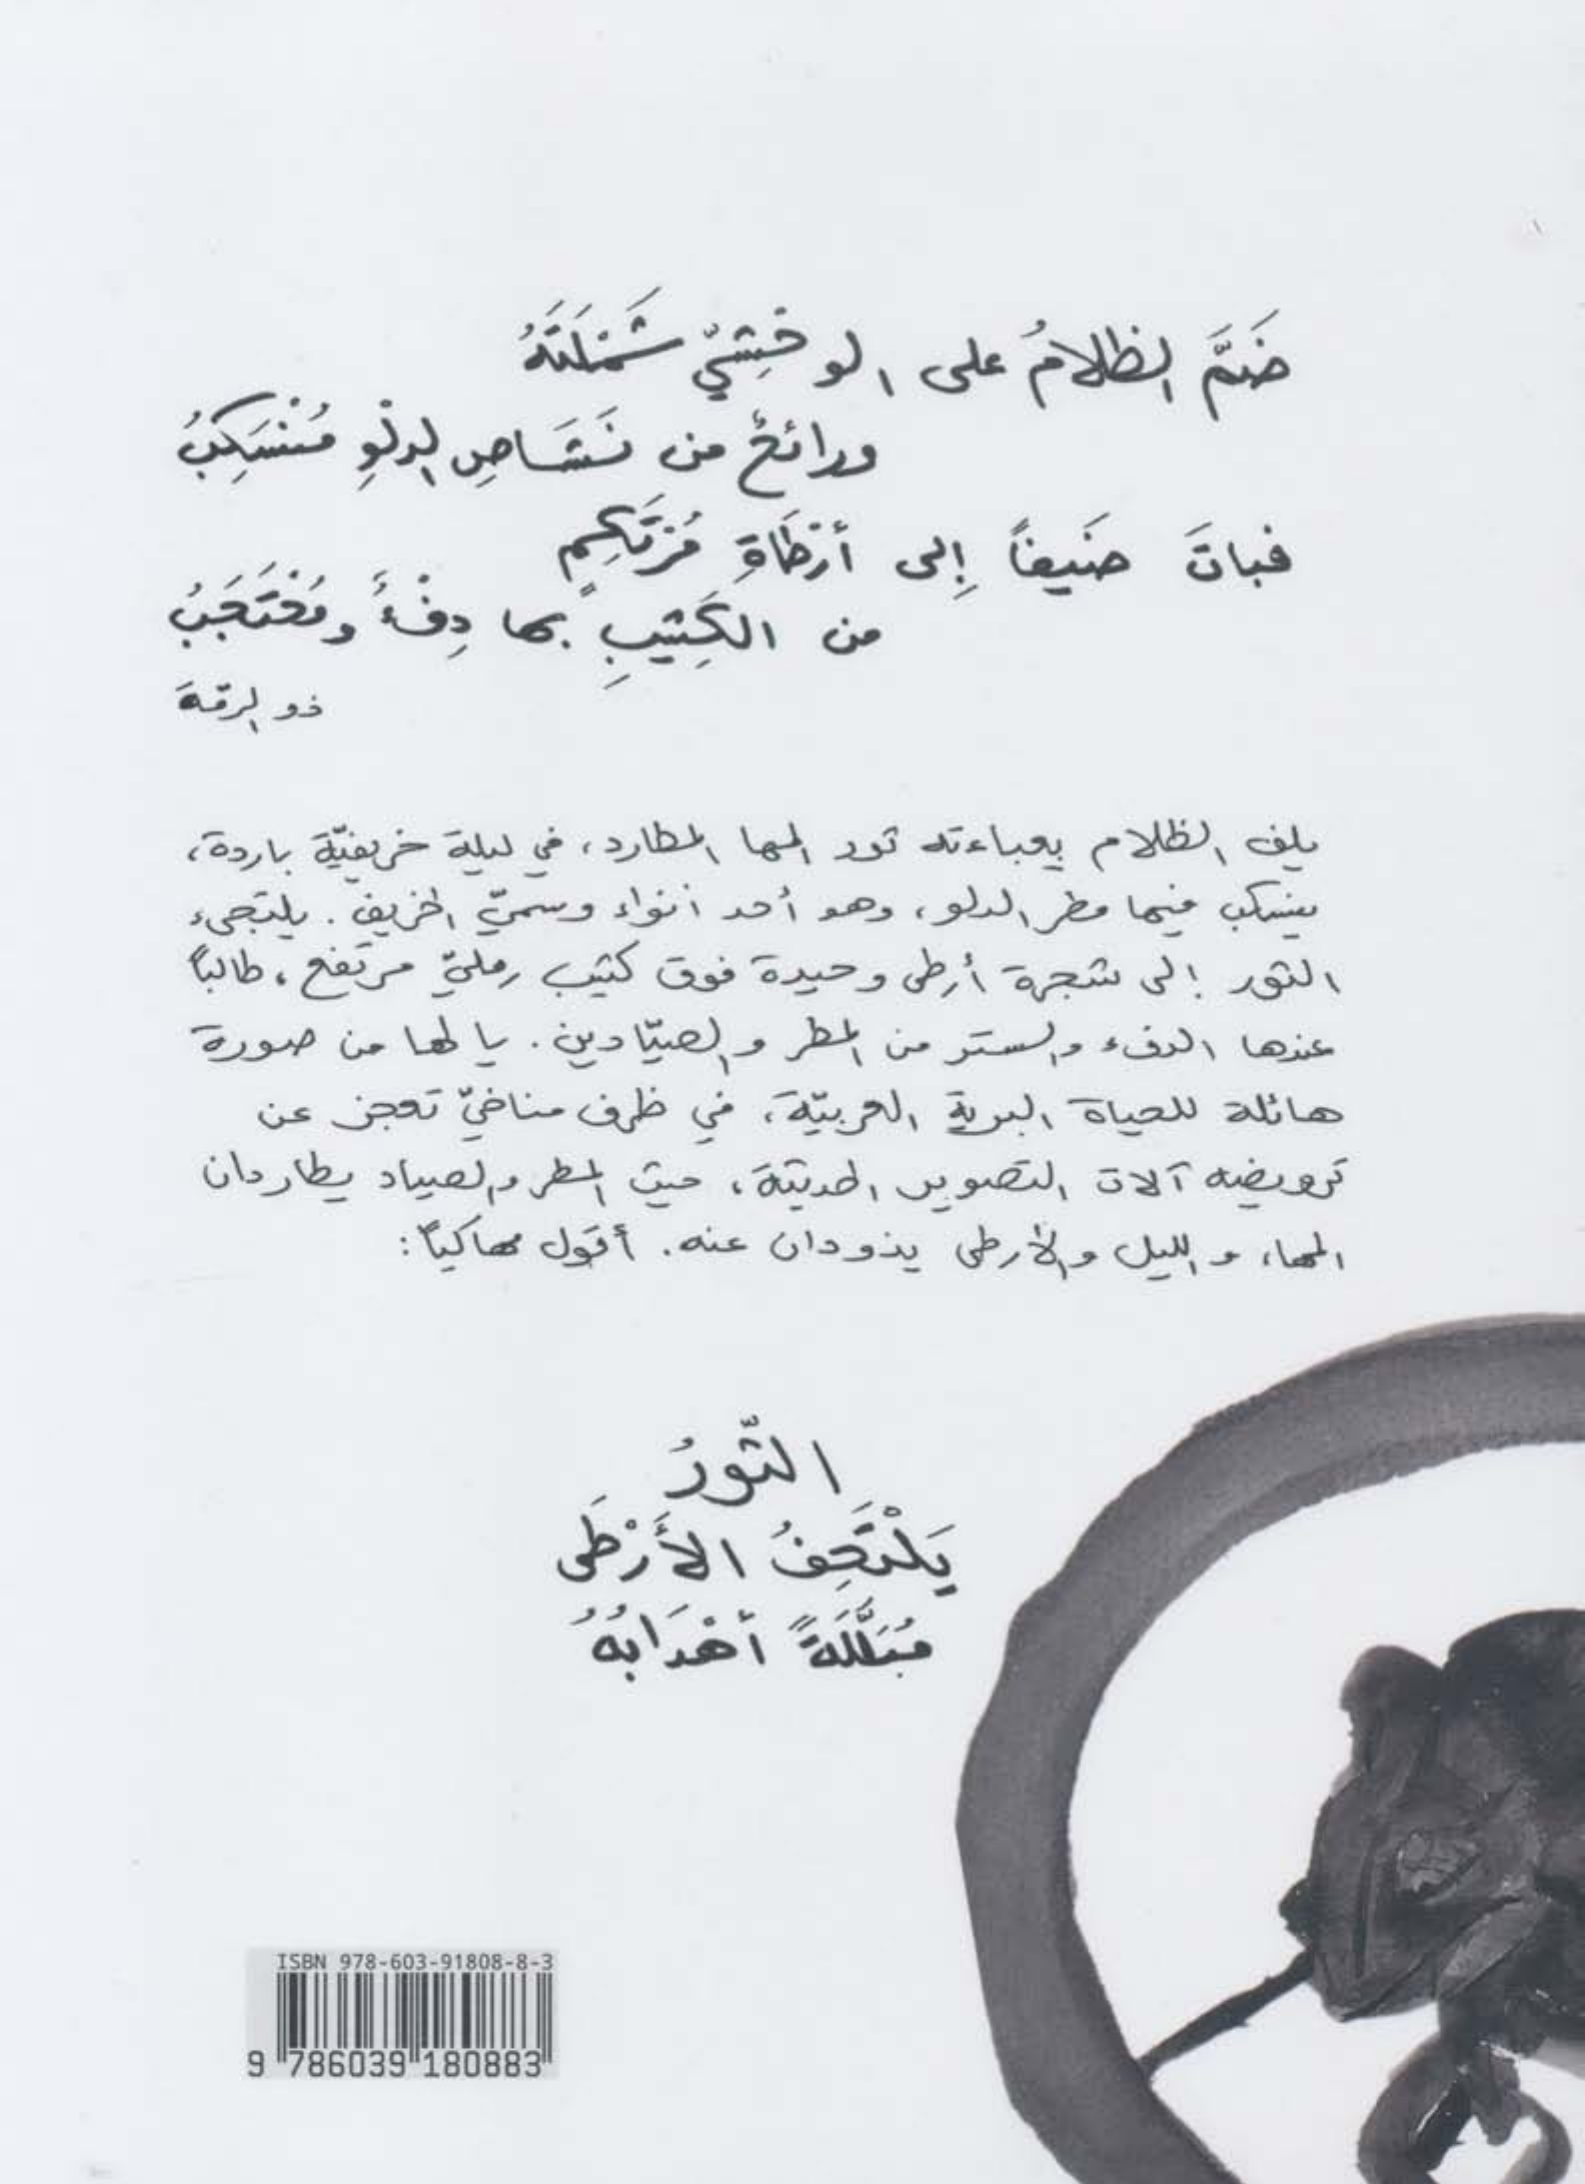 ضَمَّ الظلامُ على الوحْشِيِّ شَمْلَتَهُ
ورائحٌ من نَشَاصِ الدلْوِ مُنْسَكِبُ
فباتَ ضَيفاً إِلى أرْطَاةِ مُرْتَكِمٍ
من الكَثِيبِ بها دِفْءٌ ومُحْتَجَبُ
ذو الرمّة
يلف الظلام بعباءته ثور المها المطارد، في ليلة خريفيّة باردة،
ينسكب فيها مطر الدلو، وهو أحد أنواء وسميّ الخريف. يلتجىء
الثور إلى شجرة أرطى وحيدة فوق كثيب رمليّ مرتفع، طالباً
عندها الدفء والستر من المطر والصيّادين. يا لها من صورة
هائلة للحياة البرية العربيّة، في ظرف مناخيّ تعجز عن
ترويضه آلات التصوير الحديثة، حيث المطر والصياد يطاردان
المها، والليل والأرطى يذودان عنه. أقول محاكياً:
الثّورُ
يَلْتَحِفُ الأَرْطَى
مُبَلَّلَةً أهْدَابُهُ
ISBN 978-603-91808-8-3
9 786039 180883